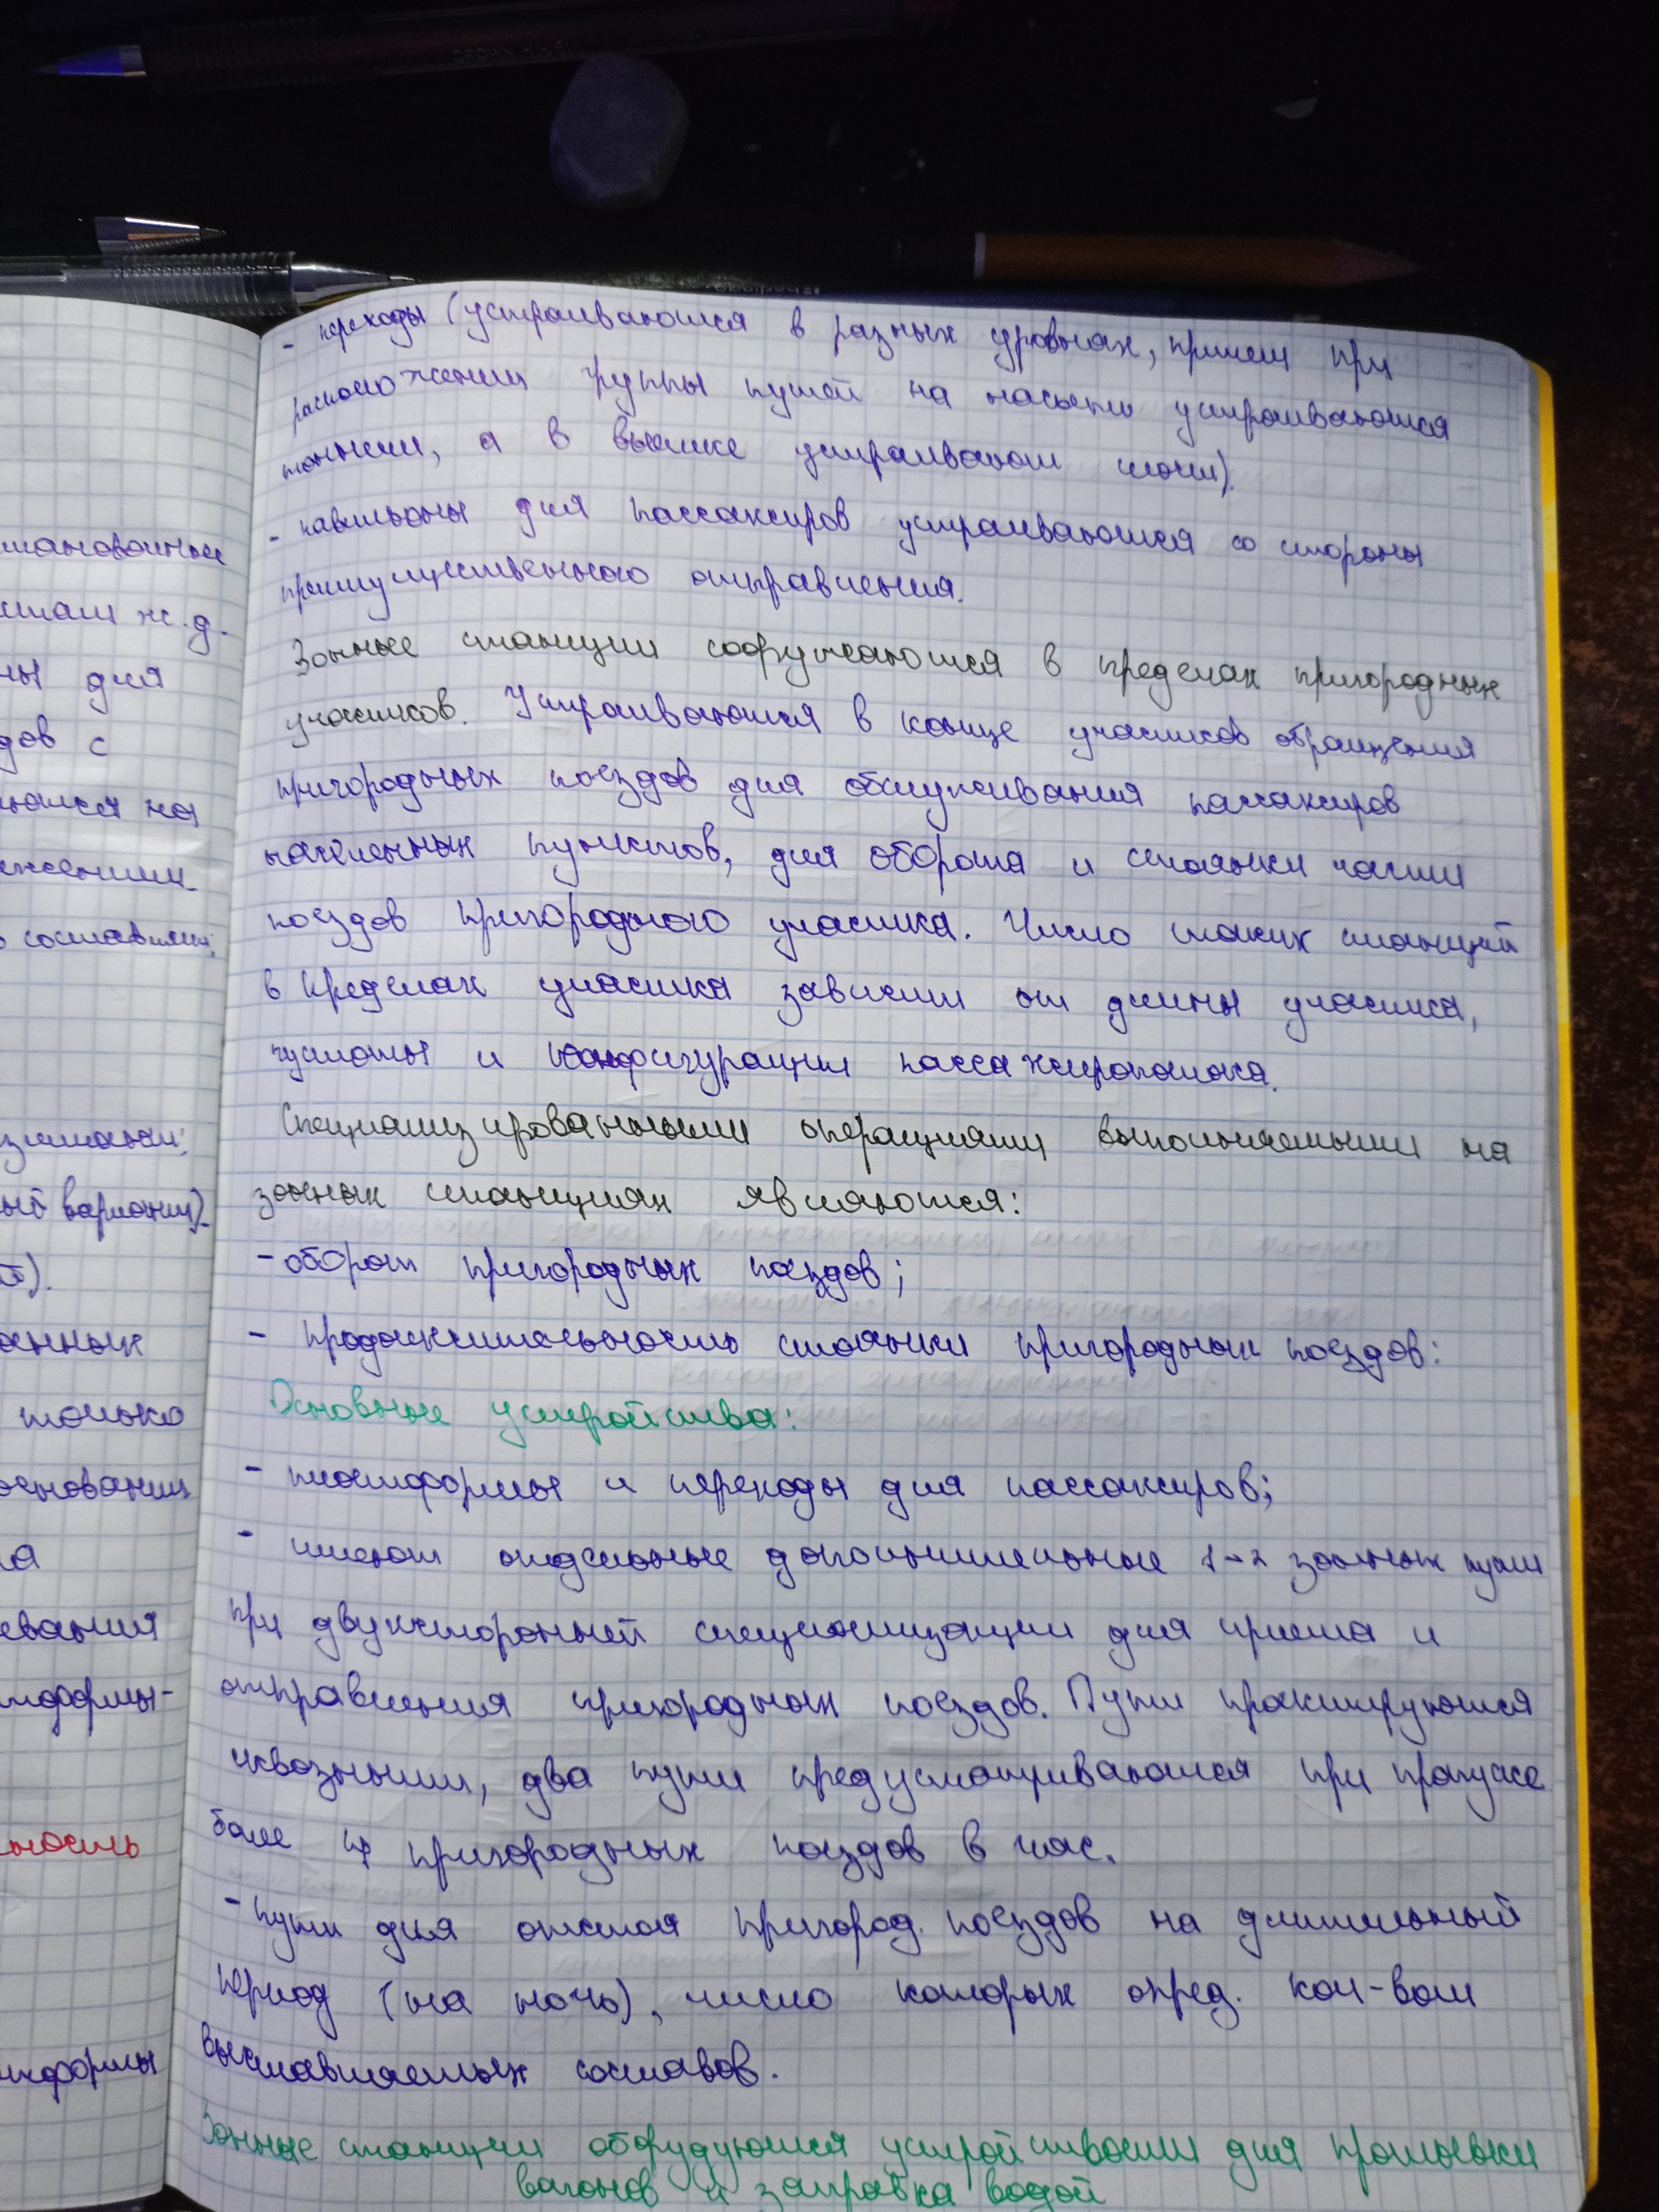 - переходы (устраиваются в разных уровнях, причем при
расположении группы путей на насыпи устраиваются
тоннели, а в выемке устраивают мосты).
- павильоны для пассажиров устраиваются со стороны
преимущественного отправления.
Зонные станции сооружаются в пределах пригородных
участков. Устраиваются в конце участков обращения
пригородных поездов для обслуживания пассажиров
населенных пунктов, для оборота и стоянки части
поездов пригородного участка. Число таких станций
в пределах участка зависит от длины участка,
густоты и конфигурации пассажиропотока.
Специализированными операциями выполняемыми на
зонных станциях являются:
- оборот пригородных поездов;
- продолжительность стоянки пригородных поездов:
Основные устройства:
- платформы и переходы для пассажиров;
- имеют отдельные дополнительные 1-2 зонных пути
при двухсторонней специализации для приема и
отправления пригородных поездов. Пути проектируются
сквозными, два пути предусматриваются при пропуске
более 4 пригородных поездов в час.
- пути для отстоя пригород. поездов на длительный
период (на ночь), число которых опред. кол-вом
выставляемых составов.
Зонные станции оборудуются устройствами для промывки
вагонов и заправка водой
тановочные
ж.д.
ны для
дов с
ются на
жении
составими;
ый вариант)
й).
анных
только
основании
ла
евания
тформы-
ность
тформы